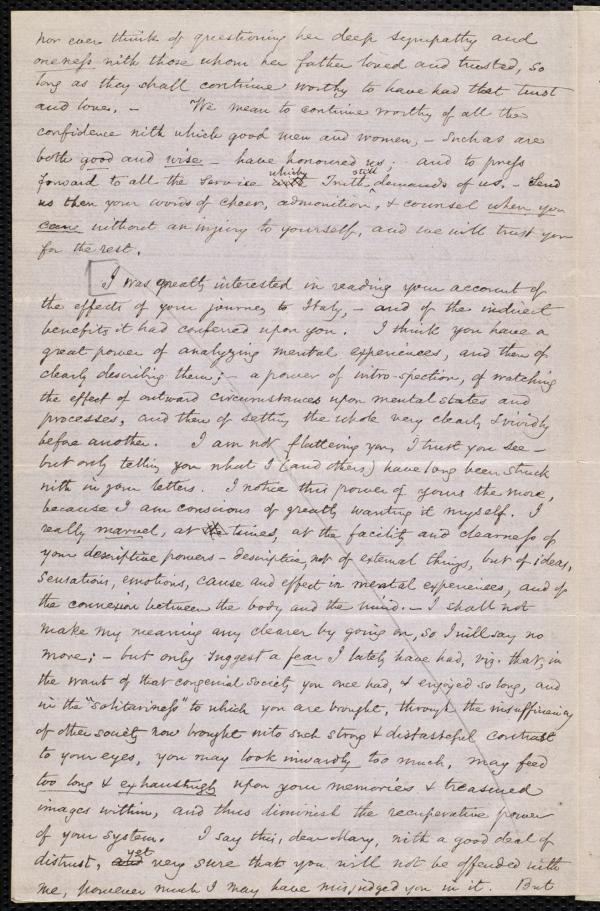 nor ever think of questioning her deep sympathy and
oneness with those whom her father loved and trusted, so
long as they shall continue worthy to have had that trust
and love. - We mean to continue worthy of all the
confidence with which good men and women, - such as are
both good and wise - have honoured us; and to press
forward to all the service which Truth still demands of us. - Send
us then your words of cheer, admonition, & counsel when you
can without an injury to yourself, and we will trust you
for the rest.
I was greatly interested in reading your account of
the effects of your journey to Italy, - and of the indirect
benefits it had conferred upon you. I think you have a
great power of analyzing mental experiences, and then of
clearly describing them; - a power of intro-spection, of watching
the effect of outward circumstances upon mental states and
processes, and then of setting the whole very clearly & vividly
before another. I am not flattering you, I trust you see -
but only telling you what I (and others) have long been struck
with in your letters. I notice this power of yours the more,
because I am conscious of greatly wanting it myself. I
really marvel, at times, at the facility and clearness of
your descriptive powers - descriptive, not of external things, but of ideas,
sensations, emotions, cause and effect in mental experiences, and of
the connexion between the body and the mind. - I shall not
make my meaning any clearer by going on, so I will say no
more; - but only suggest a fear I lately have had, viz. that, in
the want of that congenial society you once had, & enjoyed so long, and
in the "solitariness" to which you are brought, through the insufficiency
of other society now brought into such strong & distasteful contrast
to your eyes, you may look inwardly too much, may feed
too long & exhaustingly upon your memories & treasured
images within, and thus diminish the recuperative power
of your system. I say this, dear Mary, with a good deal of
distrust, yet very sure that you will not be offended with
me, however much I may have misjudged you in it. But